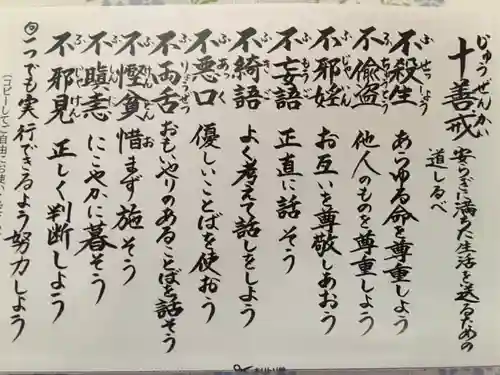 じゅうぜんかい
十善戒
安らぎに満ちた生活を送るための
道しるべ
不殺生 あらゆる命を尊重しよう
ふせっしょう
不偸盗 他人のものを尊重しよう
ふちゅうとう
不邪婬 お互いを尊敬しあおう
ふじゃいん
不妄語 正直に話そう
ふもうご
不綺語 よく考えて話しをしよう
ふきご
不悪口 優しいことばを使おう
ふあっく
不両舌 おもいやりのあることばを話そう
ふりょうぜつ
不慳貪 惜まず施そう
ふけんどん お
不瞋恚 にこやかに暮そう
ふしんに
不邪見 正しく判断しよう
ふじゃけん
一つでも実行できるよう努力しよう
(コピーしてご自由にお使い